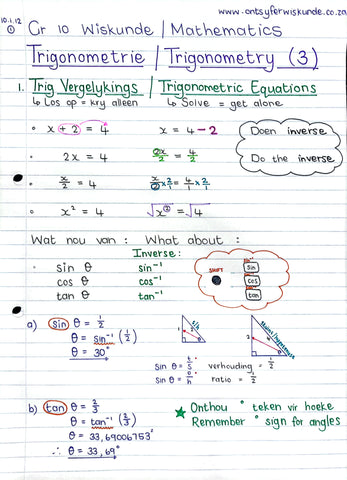 www.ontsyferwiskunde.co.za
10.1.12
①
Gr 10 Wiskunde | Mathematics
Trigonometrie | Trigonometry (3)
1. Trig Vergelykings | Trigonometric Equations
↳ Los op = kry alleen ↳ Solve = get alone
° x + 2 = 4 x = 4 - 2
Doen inverse
° 2x = 4 2x/2 = 4/2
Do the inverse
° x/2 = 4 x/2 × 2/1 = 4/1 × 2/1
° x² = 4 √x² = √4
Wat nou van : What about :
Inverse:
sin θ sin⁻¹
cos θ cos⁻¹
tan θ tan⁻¹
SHIFT
sin
cos
tan
a) sin θ = 1/2
θ = sin⁻¹ (1/2)
θ = 30°
sin θ = t/s verhouding = 1/2
sin θ = o/h ratio = 1/2
b) tan θ = 2/3
θ = tan⁻¹ (2/3)
θ = 33,69006753°
∴ θ = 33,69°
★ Onthou ° teken vir hoeke
Remember ° sign for angles